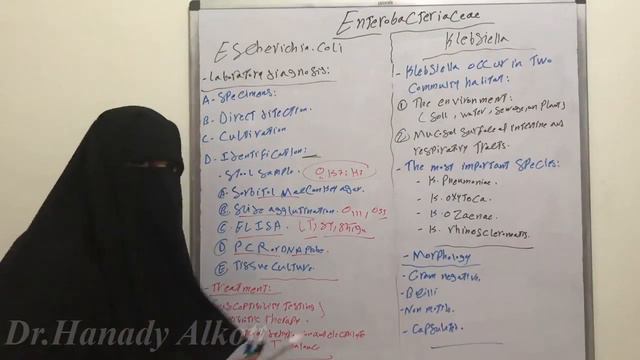 Enterobacteriaceae
Escherichia.coli
- Laboratory diagnosis:
A- Specimens:
B- Direct detection.
C- Cultivation
D- Identification:
. Stool sample. O157:H7
Ⓐ Sorbitol MacConkey agar.
Ⓑ Slide agglutination. O111, O55
Ⓒ ELISA. LT, ST, Shiga
Ⓓ PCR or DNA probe
Ⓔ Tissue culture.
- Treatment:
Testing
Therapy.
Klebsiella
- Klebsiella occur in Two
Community habitat:
① The environment:
( Soil, water, sewage, and Plants )
② Mucosal surface of intestine and
respiratory tracts.
- The most important species:
- K. Pneumoniae.
- K. oxytoca.
- K. ozaenae.
- K. rhinoscleromatis.
- Morphology
- Gram negative.
- Bacilli
- Non motile.
- Capsulated.
Dr.Hanady Alkon